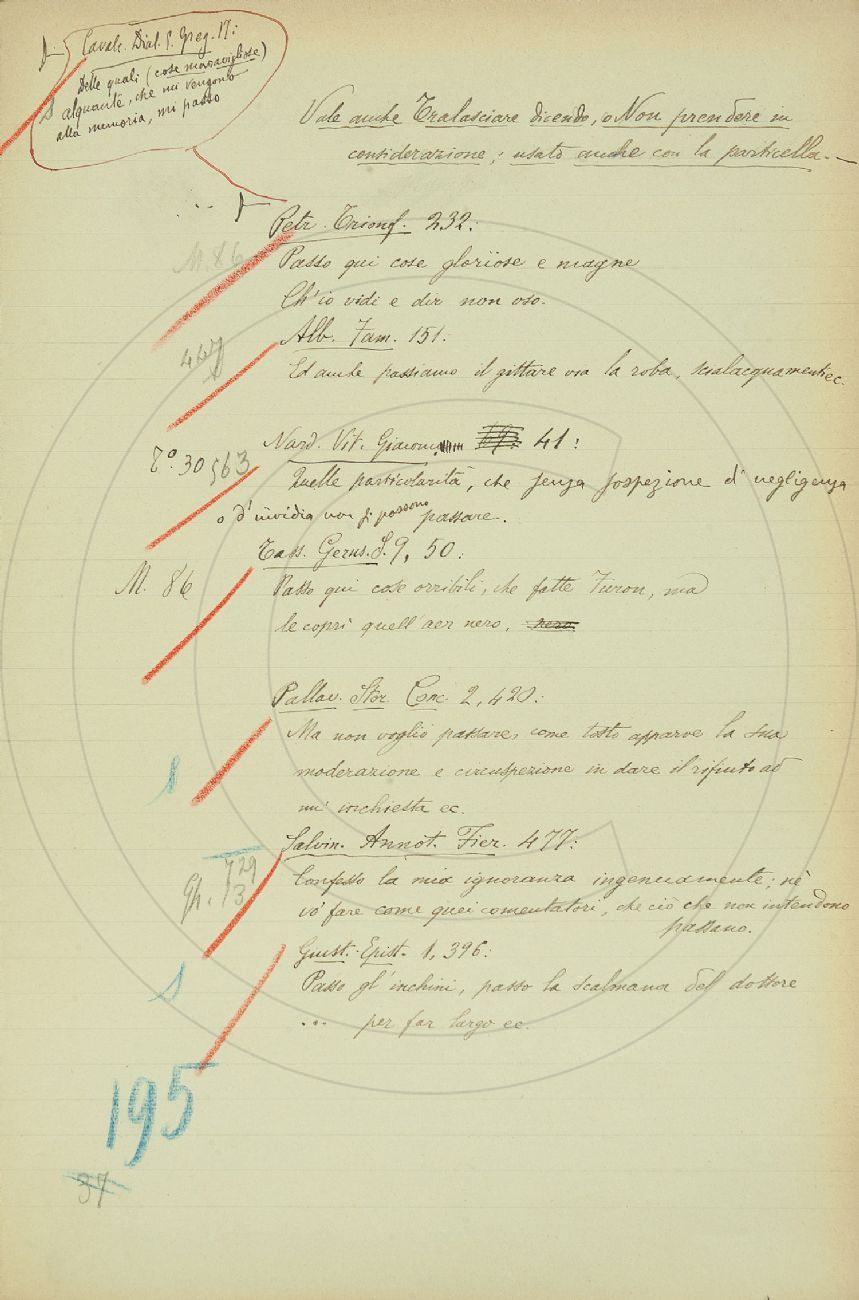 Cavalc. Dial. S. Greg. 17:
Delle quali (cose maravigliose)
alquante, che mi vengono
alla memoria, mi passo
Vale anche Tralasciare dicendo, o Non prendere in
considerazione; usato anche con la particella.
Petr. Trionf. 232:
M. 86
Passo qui cose gloriose e magne
Ch'io vidi e dir non oso.
Alb. Fam. 151:
Ed anche passiamo il gittare via la roba, scialacquamenti ec.
Nard. Vit. Giacom. 41:
T.º 30 563
Quelle particolarità, che senza sospezione d'negligenza
o d'invidia non si possono passare.
Tass. Gerus. S. 9, 50:
M. 86
Passo qui cose orribili, che fatte furon, ma
le coprì quell'aer nero. nero
Pallav. Stor. Conc. 2, 420:
Ma non voglio passare, come tosto apparve la sua
moderazione e circuspezione in dare il rifiuto ad
un' inchiesta ec.
Salvin. Annot. Fier. 477:
Gh. 729
13
Confesso la mia ignoranza ingenuamente; nè
vo' fare come quei comentatori, che ciò che non intendono
passano.
Giust. Epist. 1, 396:
Passo gl'inchini, passo la scalmana del dottore
... per far largo ec.
195
37